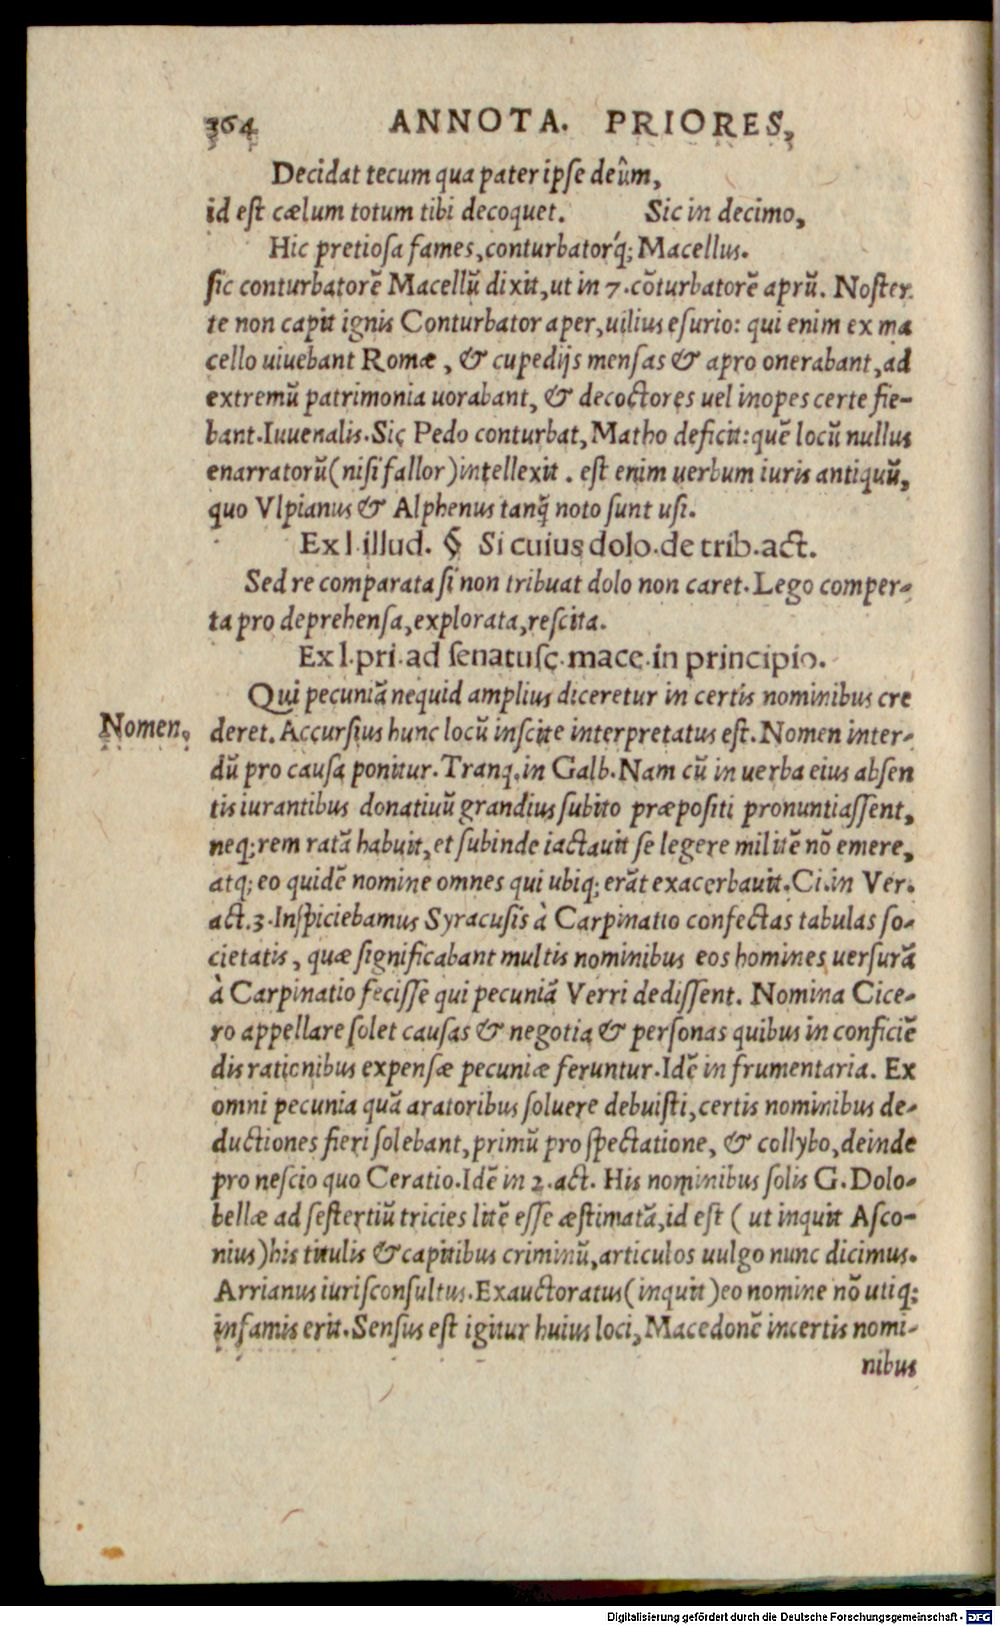 364 ANNOTA. PRIORES,
Decidat tecum qua pater ipſe deûm,
id eſt cælum totum tibi decoquet. Sic in decimo,
Hic pretioſa fames, conturbatorq́; Macellus.
ſic conturbatorē Macellū dixit, ut in 7. cōturbatorē aprū. Noſter
te non capit ignis Conturbator aper, uilius eſurio: qui enim ex ma
cello uiuebant Romæ, & cupedijs menſas & apro onerabant, ad
extremū patrimonia uorabant, & decoctores uel inopes certe fie-
bant. Iuuenalis. Sic Pedo conturbat, Matho deficit: quē locū nullus
enarratorū (niſi fallor) intellexit. eſt enim uerbum iuris antiquū,
quo Vlpianus & Alphenus tanq̃ noto ſunt uſi.
Ex l. illud. § Si cuius dolo. de trib. act.
Sed re comparata ſi non tribuat dolo non caret. Lego comper-
ta pro deprehenſa, explorata, reſcita.
Ex l. pri. ad ſenatuſc. mace. in principio.
Qui pecuniā nequid amplius diceretur in certis nominibus cre
Nomen. deret. Accurſius hunc locū inſcite interpretatus eſt. Nomen inter-
dū pro cauſa ponitur. Tranq. in Galb. Nam cū in uerba eius abſen
tis iurantibus donatiuū grandius ſubito præpoſiti pronuntiaſſent,
neq; rem ratā habuit, et ſubinde iactauit ſe legere militē nō emere,
atq; eo quidē nomine omnes qui ubiq; erāt exacerbauit. Ci. in Ver.
act. 3. Inſpiciebamus Syracuſis à Carpinatio confectas tabulas ſo-
cietatis, quæ ſignificabant multis nominibus eos homines uerſurā
à Carpinatio feciſſe qui pecuniā Verri dediſſent. Nomina Cice-
ro appellare ſolet cauſas & negotia & perſonas quibus in conficiē
dis rationibus expenſæ pecuniæ feruntur. Idē in frumentaria. Ex
omni pecunia quā aratoribus ſoluere debuiſti, certis nominibus de-
ductiones fieri ſolebant, primū pro ſpectatione, & collybo, deinde
pro neſcio quo Ceratio. Idē in 2. act. His nominibus ſolis G. Dolo-
bellæ ad ſeſtertiū tricies litē eſſe æſtimatā, id eſt (ut inquit Aſco-
nius) his titulis & capitibus criminū, articulos uulgo nunc dicimus.
Arrianus iuriſconſultus. Exauctoratus (inquit) eo nomine nō utiq;
infamis erit. Senſus eſt igitur huius loci, Macedonē incertis nomi-
nibus
Digitalisierung gefördert durch die Deutsche Forschungsgemeinschaft - DFG